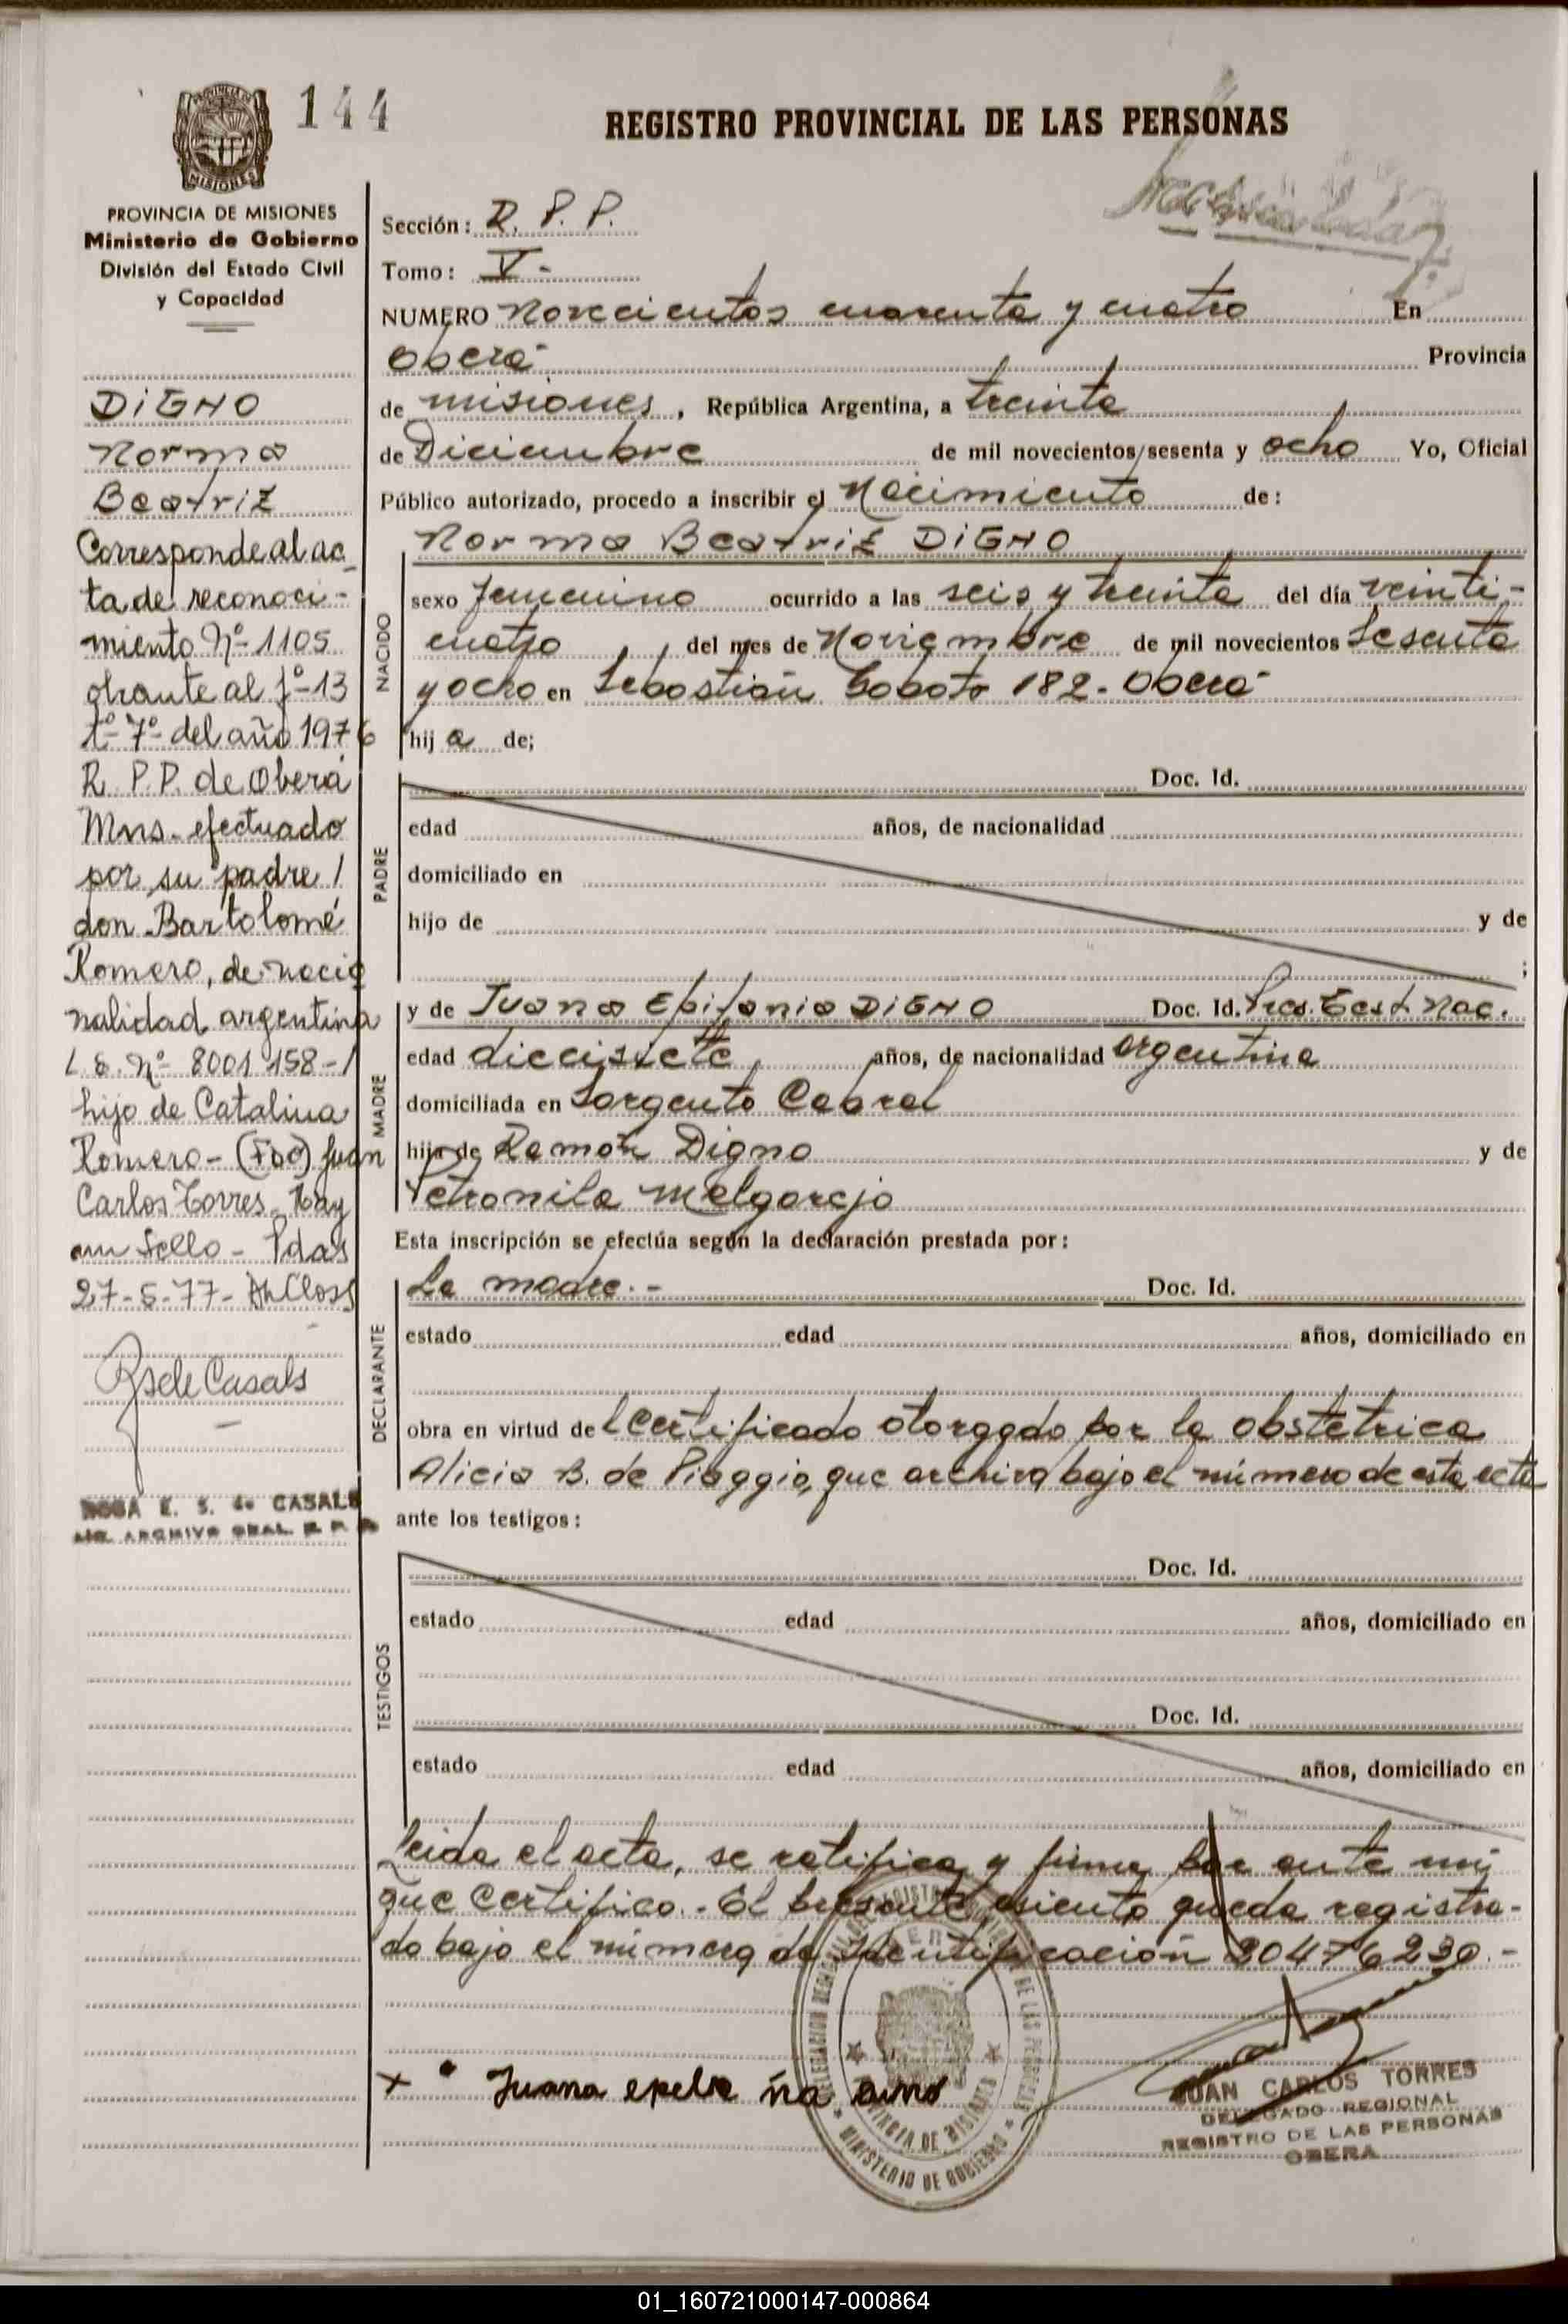 144
REGISTRO PROVINCIAL DE LAS PERSONAS
MISIONES
PROVINCIA DE MISIONES
Ministerio de Gobierno
División del Estado Civil
y Capacidad
DIGNO
Norma
Beatriz
Corresponde al ac
ta de reconoci-
miento Nº 1105
obrante al fº 13
tº 7º del año 1976
R. P. P. de Oberá
Mns. efectuado
por su padre /
don Bartolomé
Romero, de nacio
nalidad argentina
L. E. Nº 8001158-/
hijo de Catalina
Romero - (Fdo) Juan
Carlos Torres. Hay
un Sello - Pdas
27-5-77-
ROSA E. S. de CASALS
ARCHIVO GRAL. R. P. P.
Sección: R. P. P.
Tomo: V-
NUMERO Novecientos cuarenta y cuatro En
Oberá Provincia
de misiones, República Argentina, a treinta
de Diciembre de mil novecientos sesenta y ocho Yo, Oficial
Público autorizado, procedo a inscribir el Nacimiento de:
NACIDO
Norma Beatriz DIGNO
sexo femenino ocurrido a las seis y treinta del día veinti-
cuatro del mes de Noviembre de mil novecientos Sesenta
y ocho en Sebastián Gaboto 182-Oberá
hij a de;
PADRE
Doc. Id.
edad años, de nacionalidad
domiciliado en
hijo de y de
;
MADRE
y de Juana Epifania DIGNO Doc. Id. Pres. Cest. Nac.
edad diecisiete años, de nacionalidad argentina
domiciliada en Sargento Cabral
hija de Ramón Digno y de
Petronila Melgarejo
Esta inscripción se efectúa según la declaración prestada por:
DECLARANTE
La madre.- Doc. Id.
estado edad años, domiciliado en
obra en virtud del Certificado otorgado por la obstétrica
Alicia B. de Piaggio, que archivo bajo el número de esta acta
ante los testigos:
TESTIGOS
Doc. Id.
estado edad años, domiciliado en
Doc. Id.
estado edad años, domiciliado en
Leida el acta, se ratifica y firma por ante mi
que certifico.- El presente asiento queda registra-
do bajo el número de Identificación 20476230.-
x Juana
MINISTERIO DE GOBIERNO
JUAN CARLOS TORRES
DELEGADO REGIONAL
REGISTRO DE LAS PERSONAS
OBERA
01_160721000147-000864